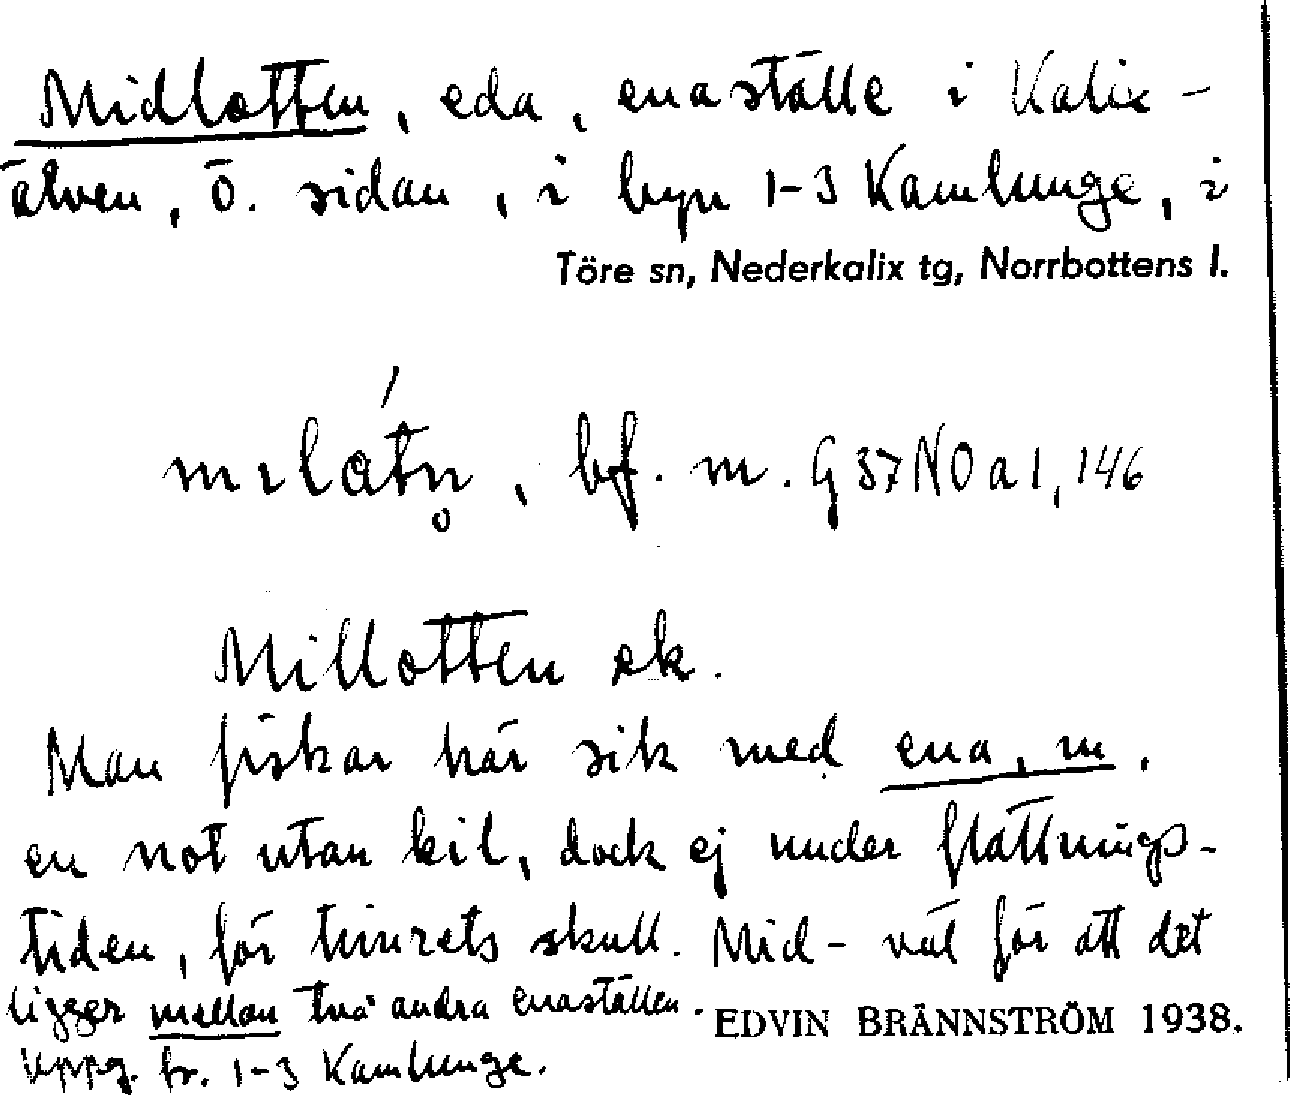 Midlotten, eda, enaställe i Kalix-
älven, ö. sidan, i byn 1-3 Kamlunge, i
Töre sn, Nederkalix tg, Norrbottens l.
mɪlátn̥, bf. m. G 37 NO a 1, 146
Millotten ek.
Man fiskar här sik med ena, m,
en not utan kil, dock ej under flottnings-
tiden, för timrets skull. Mid- väl för att det
ligger mellan två andra enaställen.
EDVIN BRÄNNSTRÖM 1938.
Uppg. fr. 1-3 Kamlunge.